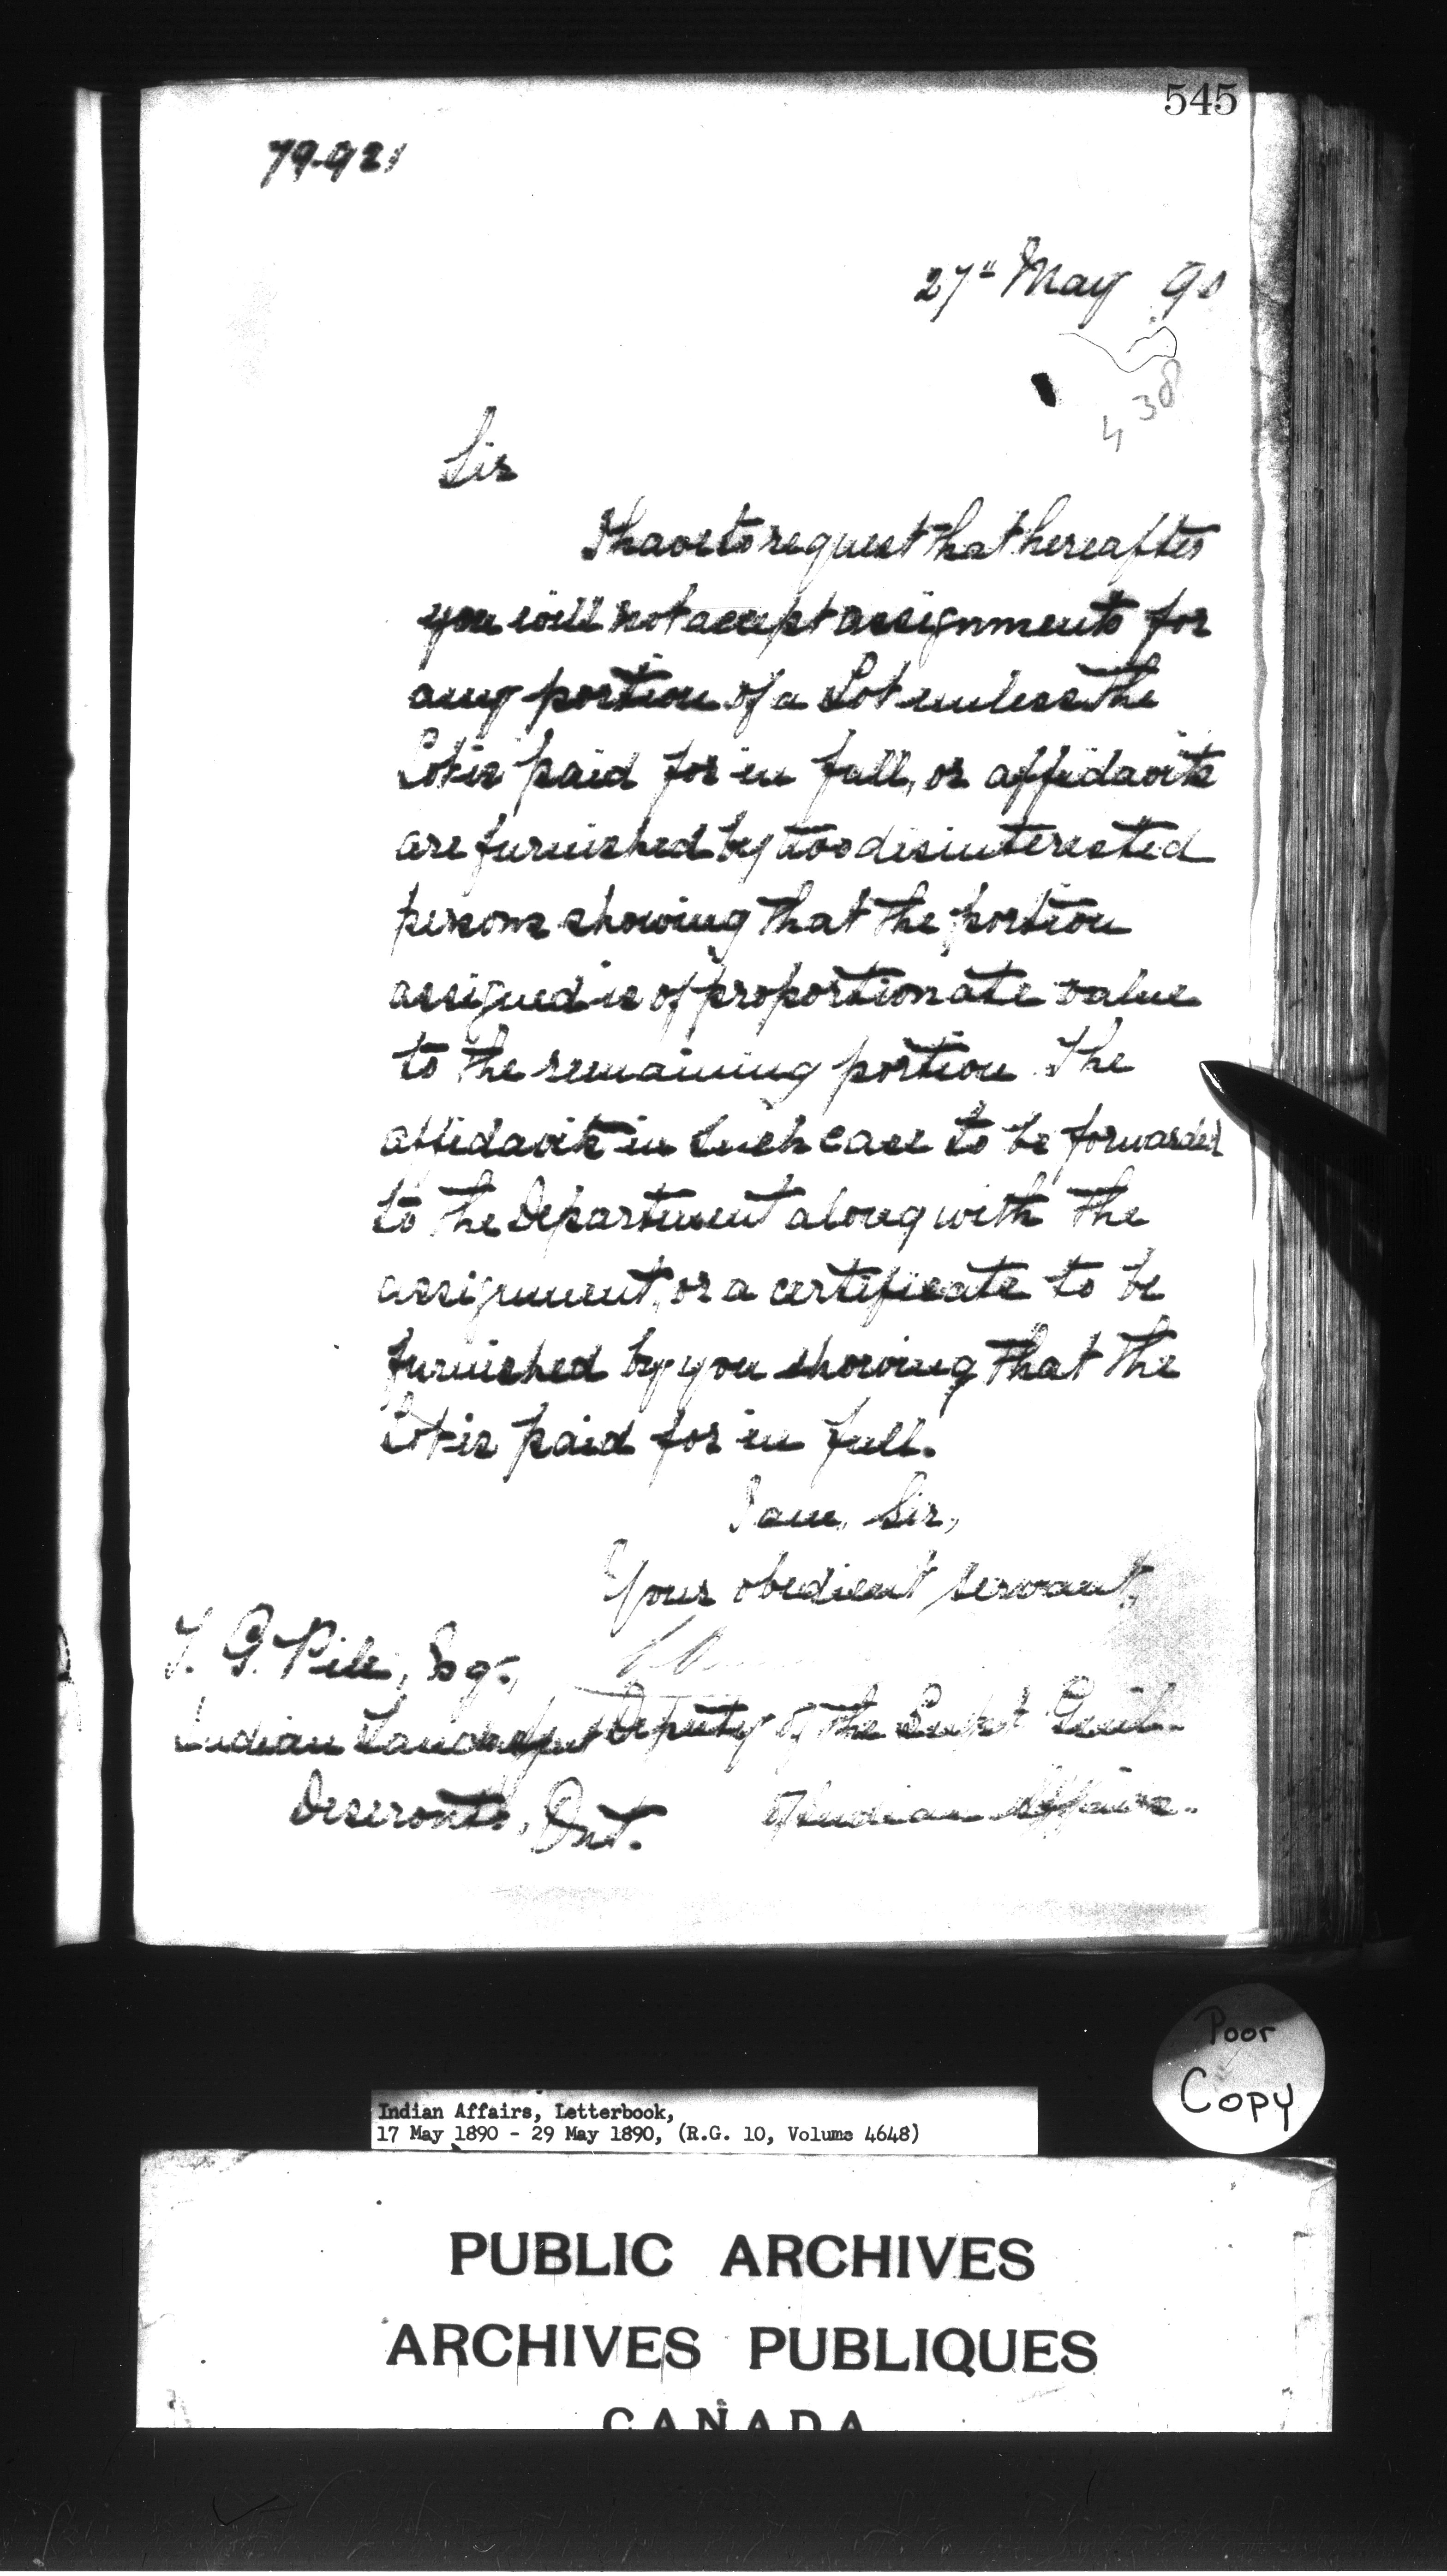 545
79.921
27th May 90
438
Sir
I have to request that hereafter
you will not accept assignments for
any portion of a Lot unless the
Lot is paid for in full, or affidavits
are furnished by two disinterested
persons showing that the portion
assigned is of proportionate value
to the remaining portion The
affidavits in such case to be forwarded
to the Department along with the
assignment, or a certificate to be
furnished by you showing that the
Lot is paid for in full.
I am, Sir,
Your obedient servant,
T. G. Pile, Esq.,
Indian Land Agent Deputy of the Supt Genl.
Deseronto, Ont. of Indian Affairs.
Poor
Copy
Indian Affairs, Letterbook,
17 May 1890 - 29 May 1890, (R.G. 10, Volume 4648)
PUBLIC ARCHIVES
ARCHIVES PUBLIQUES
CANADA